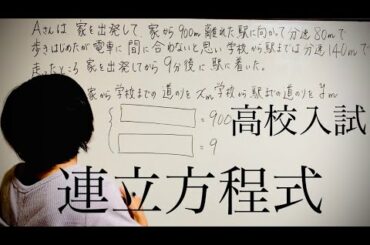 Aさんは 家を出発して、家から900m離れた駅に向かって分速80mで
歩きはじめたが電車に間に合わないと思い学校から駅までは分速140mで
走ったところ 家を出発してから9分後に駅に着いた。
家から学校までの道のりをxm学校から駅までの道のりをym
= 900
= 9
高校入試
連立方程式